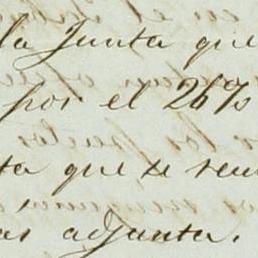 la Junta que
por el 26%
ta que se reu
as adjunta.